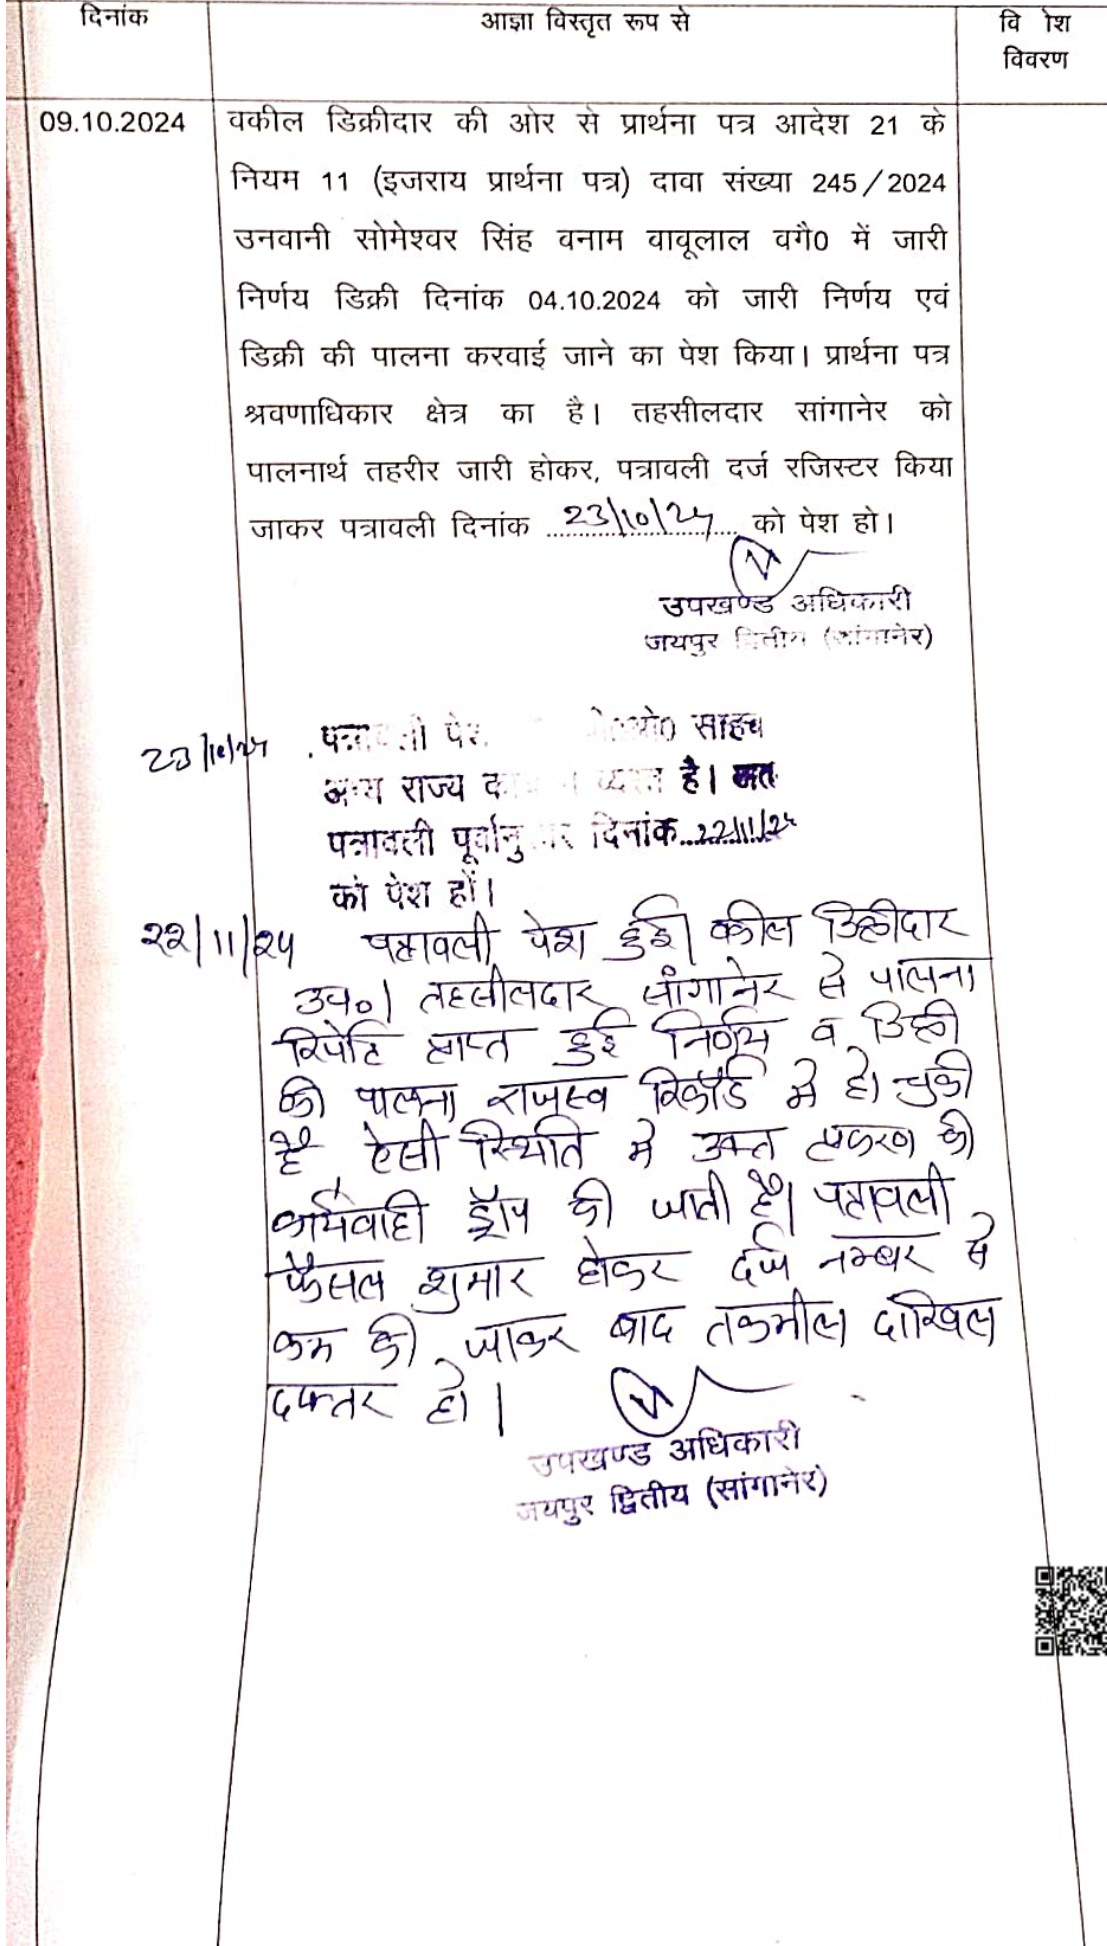 दिनांक
आज्ञा विस्तृत रूप से
वि ोश
विवरण
09.10.2024
वकील डिक्रीदार की ओर से प्रार्थना पत्र आदेश 21 के
नियम 11 (इजराय प्रार्थना पत्र) दावा संख्या 245/2024
उनवानी सोमेश्वर सिंह वनाम वावूलाल वगै0 में जारी
निर्णय डिक्री दिनांक 04.10.2024 को जारी निर्णय एवं
डिक्री की पालना करवाई जाने का पेश किया। प्रार्थना पत्र
श्रवणाधिकार क्षेत्र का है। तहसीलदार सांगानेर को
पालनार्थ तहरीर जारी होकर, पत्रावली दर्ज रजिस्टर किया
जाकर पत्रावली दिनांक 23/10/24 को पेश हो।
उपखण्ड अधिकारी
जयपुर द्वितीय (सांगानेर)
23/10/24
पत्रावली पेश साहब
अन्य राज्य व्यस्त है। अत
पत्रावली पूर्वानुसार दिनांक 22/11/24
को पेश हों।
22/11/24 पत्रावली पेश हुई। वकील डिक्रीदार
उप०। तहसीलदार सांगानेर से पालना
रिपोर्ट प्राप्त हुई निर्णय व डिक्री
की पालना राजस्व रिकॉर्ड में हो चुकी
है ऐसी स्थिति में उक्त प्रकरण की
कार्यवाही ड्रॉप की जाती है। पत्रावली
फैसल शुमार होकर दर्ज नम्बर से
कम की जाकर बाद तकमील दाखिल
दफ्तर हो।
उपखण्ड अधिकारी
जयपुर द्वितीय (सांगानेर)